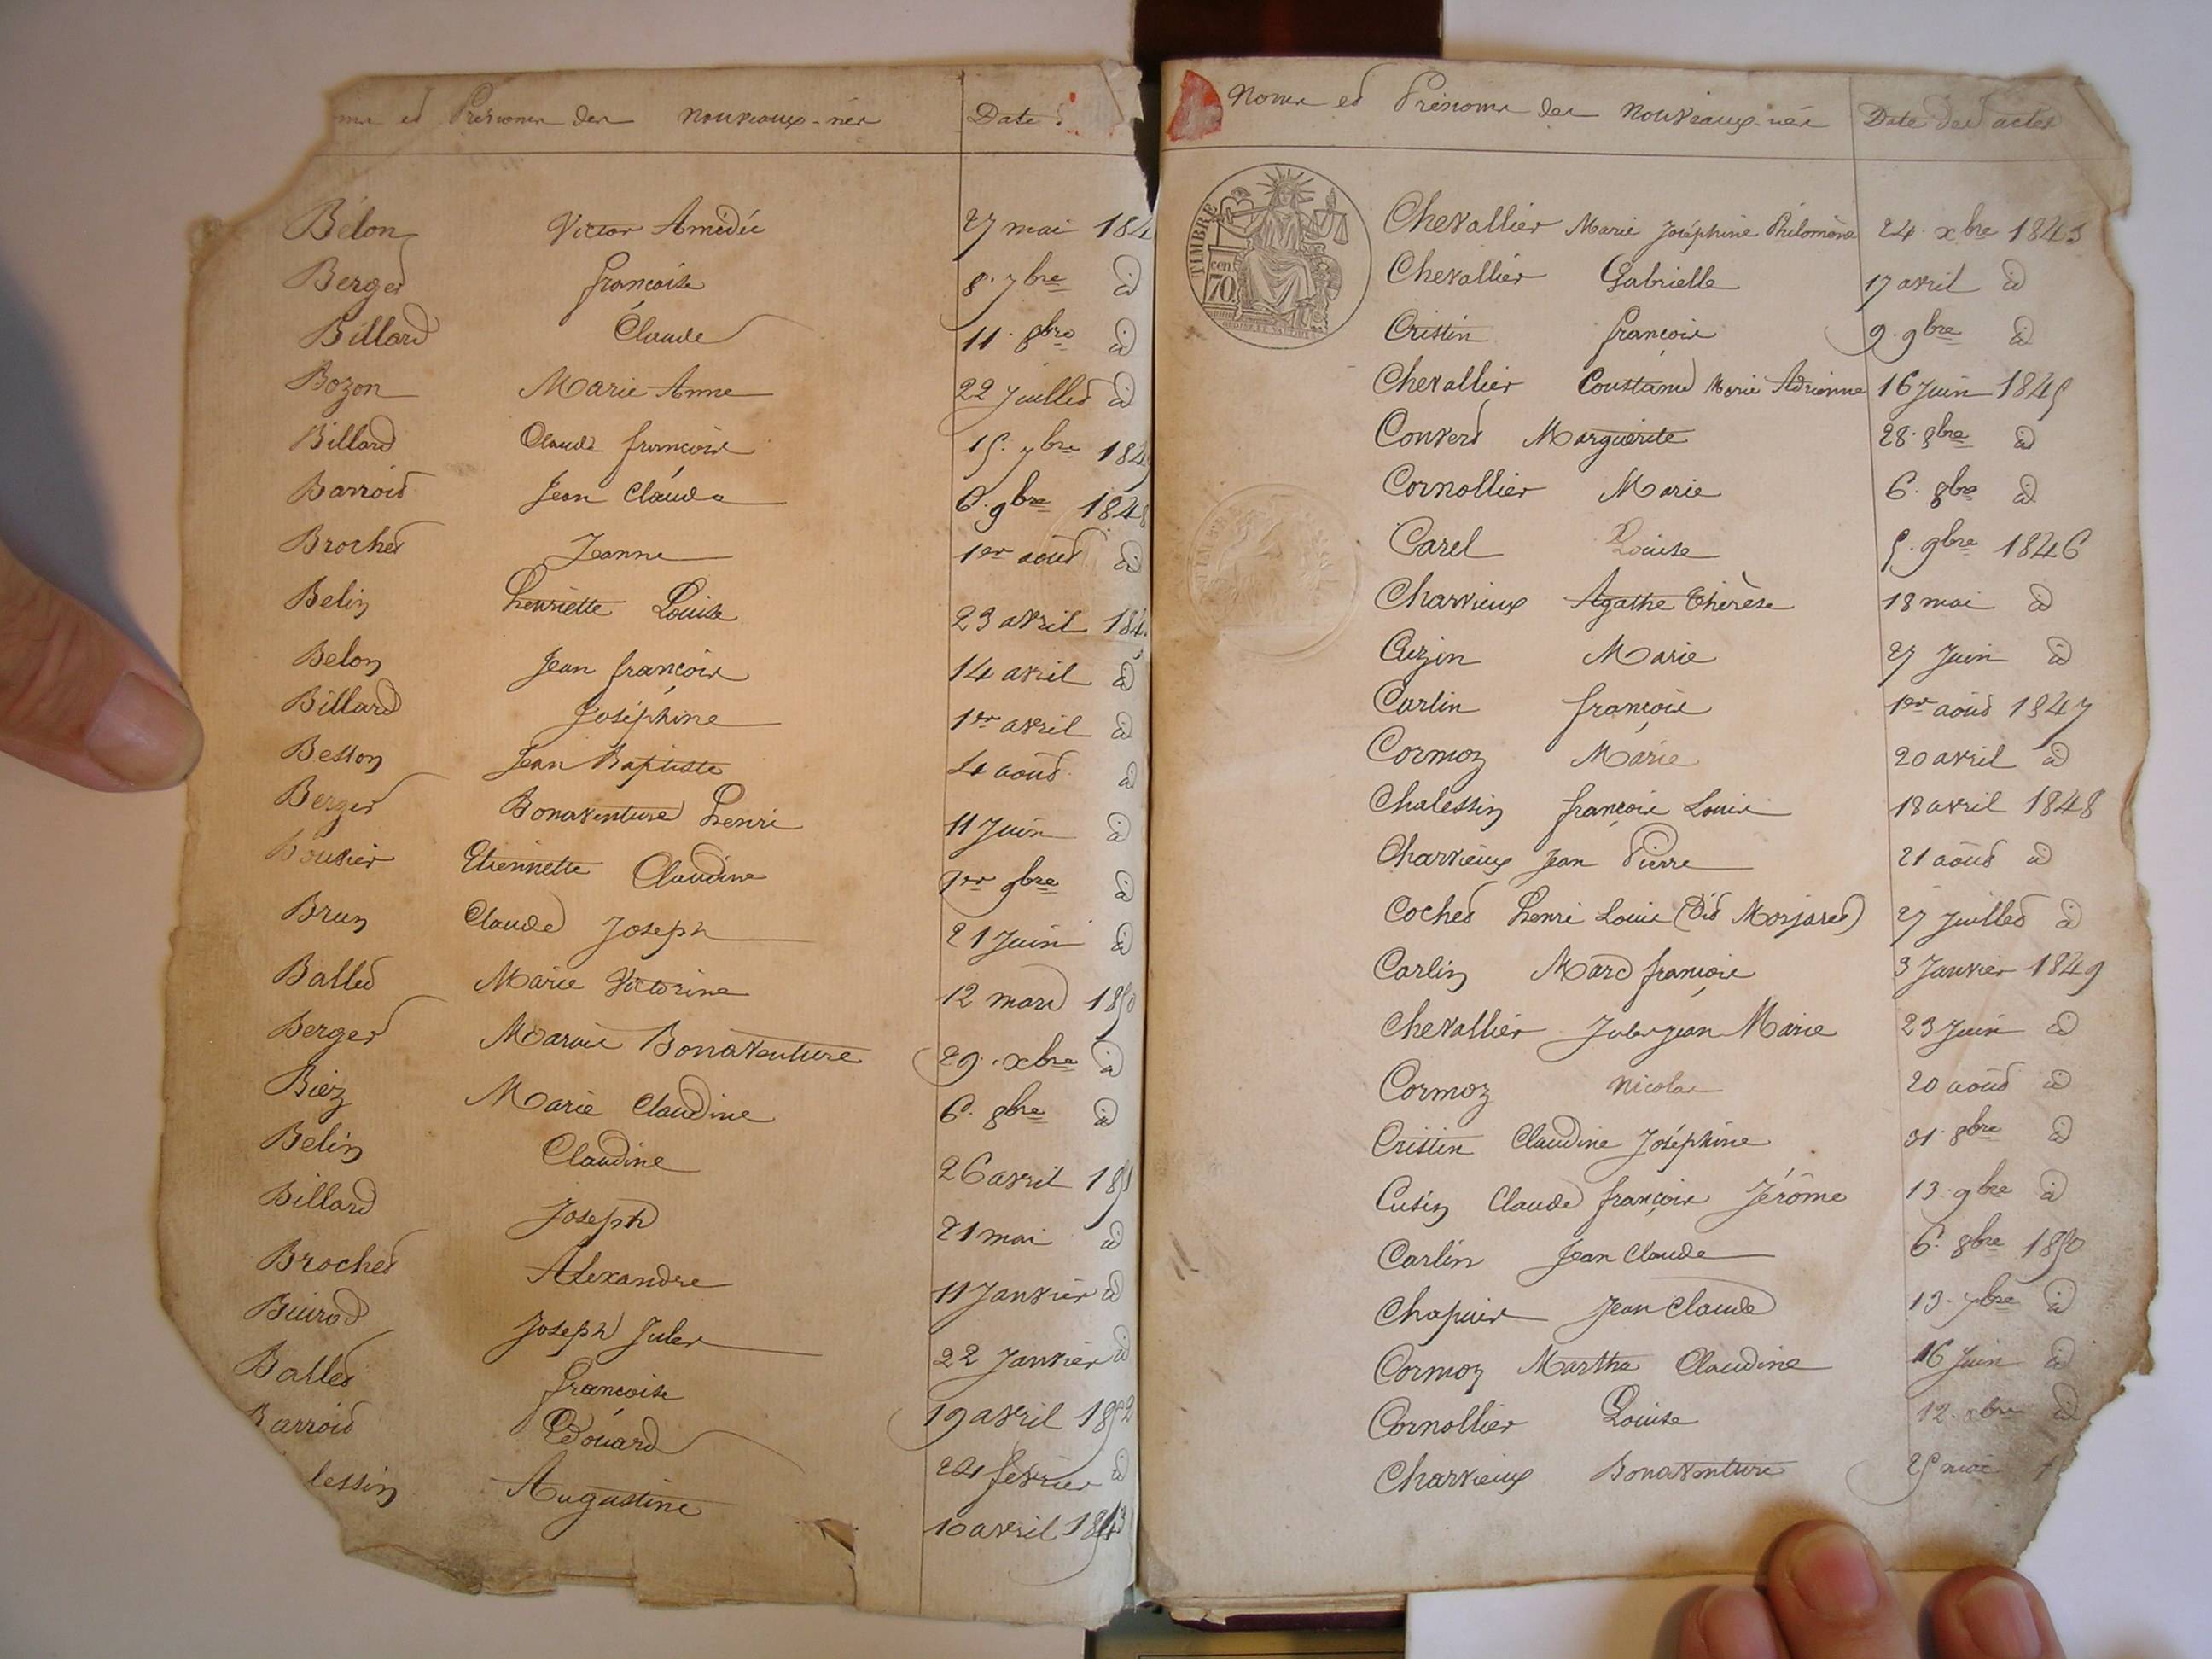 et Prénoms des nouveaux-nés Date
Bélon Victor Amédée 27 mai 184
Berger françoise 8. 7bre id
Billard Claude 11. 8bre id
Bozon Marie Anne 22 Juillet id
Billard Claude françois 15. 7bre 184
Barroid Jean Claude 6. 9bre 1848
Brochet Jeanne 1er août id
Belin henriette Louise 23 avril 184
Belon Jean françois 14 avril id
Billard Joséphine 1er avril id
Besson Jean Baptiste 4 août id
Berger Bonaventure henri 11 Juin id
Bouvier Etiennette Claudine 1er 9bre id
Brun Claude Joseph 21 Juin id
Ballet Marie Victorine 12 mars 1850
Berger Marie Bonaventure 29. xbre id
Biez Marie Claudine 6. 8bre id
Belin Claudine 26 avril 1851
Billard Joseph 21 mai id
Brochet Alexandre 11 Janvier id
Buirod Joseph Jules 22 Janvier id
Ballet françoise 19 avril 1852
Barroid Edouard 24 février id
lessin Augustine 10 avril
Noms et Prénoms des nouveaux-nés Date des actes
TIMBRE
cen.
70
Chevallier Marie Joséphine Philomène 24. xbre 1843
Chevallier Gabrielle 17 avril id
Cristin françois 9. 9bre id
Chevallier Constant Marie Adrienne 16 Juin 1845
Convert Marguerite 28. 8bre id
Cornollier Marie 6. 8bre id
Carel Louise 5. 9bre 1846
Charvieux Agathe Thérèse 18 mai id
Marie 27 Juin id
Carlin françois 1er août 1847
Cormoz Marie 20 avril id
Chalessin françois Louis 18 avril 1848
Charvieux Jean Pierre 21 août id
Cochet henri Louis (dit Morjaret) 27 Juillet id
Carlin Marc françois 3 Janvier 1849
Chevallier Jules Jean Marie 23 Juin id
Cormoz Nicolas 20 août id
Cristin Claudine Joséphine 31. 8bre id
Cusin Claude françois Jérôme 13. 9bre id
Carlin Jean Claude 6. 8bre 1850
Chapuis Jean Claude 13. 7bre id
Cormoz Marthe Claudine 16 Juin id
Cornollier Louise 12. xbre id
Charvieux Bonaventure 25 mai 1